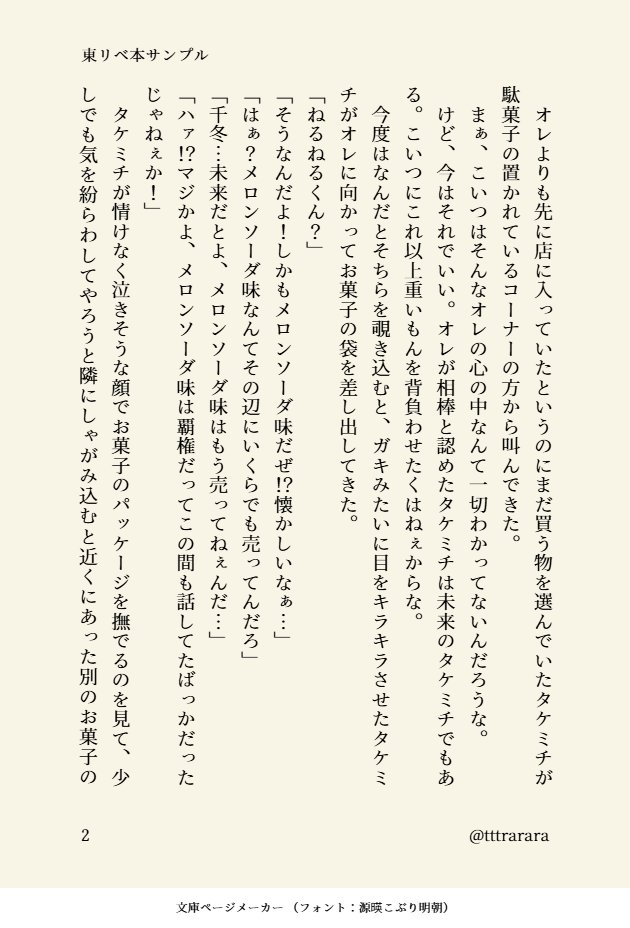 東リベ本サンプル
　オレよりも先に店に入っていたというのにまだ買う物を選んでいたタケミチが
駄菓子の置かれているコーナーの方から叫んできた。
　まぁ、こいつはそんなオレの心の中なんて一切わかってないんだろうな。
　けど、今はそれでいい。オレが相棒と認めたタケミチは未来のタケミチでもあ
る。こいつにこれ以上重いもんを背負わせたくはねぇからな。
　今度はなんだとそちらを覗き込むと、ガキみたいに目をキラキラさせたタケミ
チがオレに向かってお菓子の袋を差し出してきた。
「ねるねるくん？」
「そうなんだよ！しかもメロンソーダ味だぜ!?懐かしいなぁ…」
「はぁ？メロンソーダ味なんてその辺にいくらでも売ってんだろ」
「千冬…未来だとよ、メロンソーダ味はもう売ってねぇんだ…」
「ハァ!?マジかよ、メロンソーダ味は覇権だってこの間も話してたばっかだった
じゃねぇか！」
　タケミチが情けなく泣きそうな顔でお菓子のパッケージを撫でるのを見て、少
しでも気を紛らわしてやろうと隣にしゃがみ込むと近くにあった別のお菓子の
2
@tttrarara
文庫ページメーカー（フォント：源暎こぶり明朝）